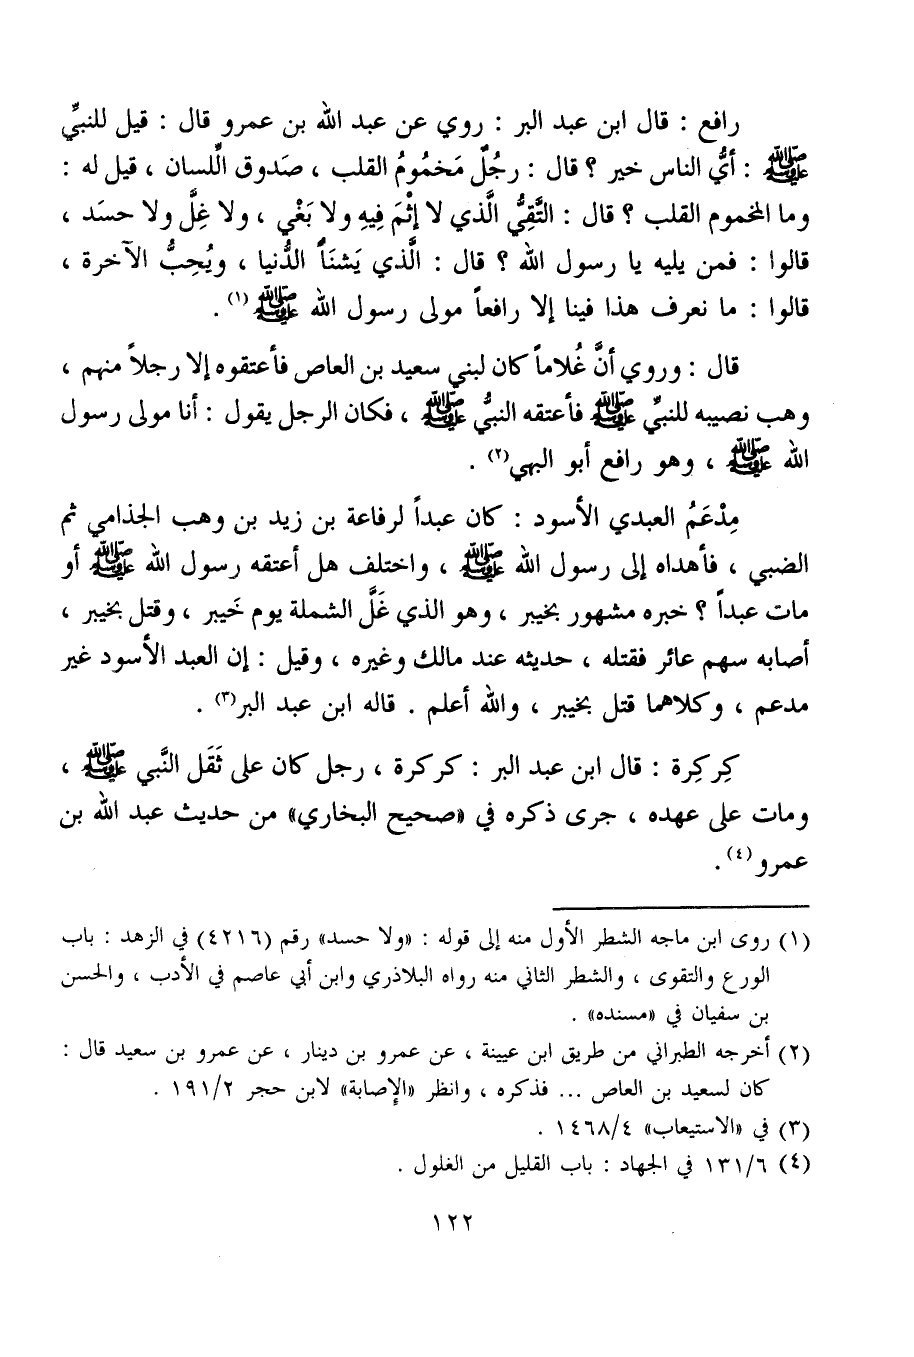 رافع : قال ابن عبد البر : روي عن عبد الله بن عمرو قال : قيل للنبيِّ
ﷺ : أيُّ الناس خير ؟ قال : رجُلٌ مَخمُومُ القلب ، صَدوق الِّلسان ، قيل له :
وما المخموم القلب ؟ قال : التَّقِيُّ الَّذي لا إثْمَ فِيهِ ولا بَغْي ، ولا غِلَّ ولا حسَد ،
قالوا : فمن يليه يا رسول الله ؟ قال : الَّذي يَشنَأُ الدُّنيا ، ويُحِبُّ الآخرة ،
قالوا : ما نعرف هذا فينا إلا رافعاً مولى رسول الله ﷺ (١) .
قال : وروي أنَّ غُلاماً كان لبني سعيد بن العاص فأعتقوه إلا رجلاً منهم ،
وهب نصيبه للنبيِّ ﷺ فأعتقه النبيُّ ﷺ ، فكان الرجل يقول : أنا مولى رسول
الله ﷺ ، وهو رافع أبو البهي(٢) .
مِدْعَمُ العبدي الأسود : كان عبداً لرفاعة بن زيد بن وهب الجذامي ثم
الضبي ، فأهداه إلى رسول الله ﷺ ، واختلف هل أعتقه رسول الله ﷺ أو
مات عبداً ؟ خبره مشهور بخيبر ، وهو الذي غَلَّ الشملة يوم خَيبر ، وقتل بخيبر ،
أصابه سهم عائر فقتله ، حديثه عند مالك وغيره ، وقيل : إن العبد الأسود غير
مدعم ، وكلاهما قتل بخيبر ، والله أعلم . قاله ابن عبد البر(٣) .
كِركِرة : قال ابن عبد البر : كركرة ، رجل كان على ثَقَل النَّبي ﷺ ،
ومات على عهده ، جرى ذكره في «صحيح البخاري» من حديث عبد الله بن
عمرو(٤) .
(١) روى ابن ماجه الشطر الأول منه إلى قوله : «ولا حسد» رقم (٤٢١٦) في الزهد : باب
الورع والتقوى ، والشطر الثاني منه رواه البلاذري وابن أبي عاصم في الأدب ، والحسن
بن سفيان في «مسنده» .
(٢) أخرجه الطبراني من طريق ابن عيينة ، عن عمرو بن دينار ، عن عمرو بن سعيد قال :
كان لسعيد بن العاص ... فذكره ، وانظر «الإصابة» لابن حجر ١٩١/٢ .
(٣) في «الاستيعاب» ١٤٦٨/٤ .
(٤) ١٣١/٦ في الجهاد : باب القليل من الغلول .
١٢٢